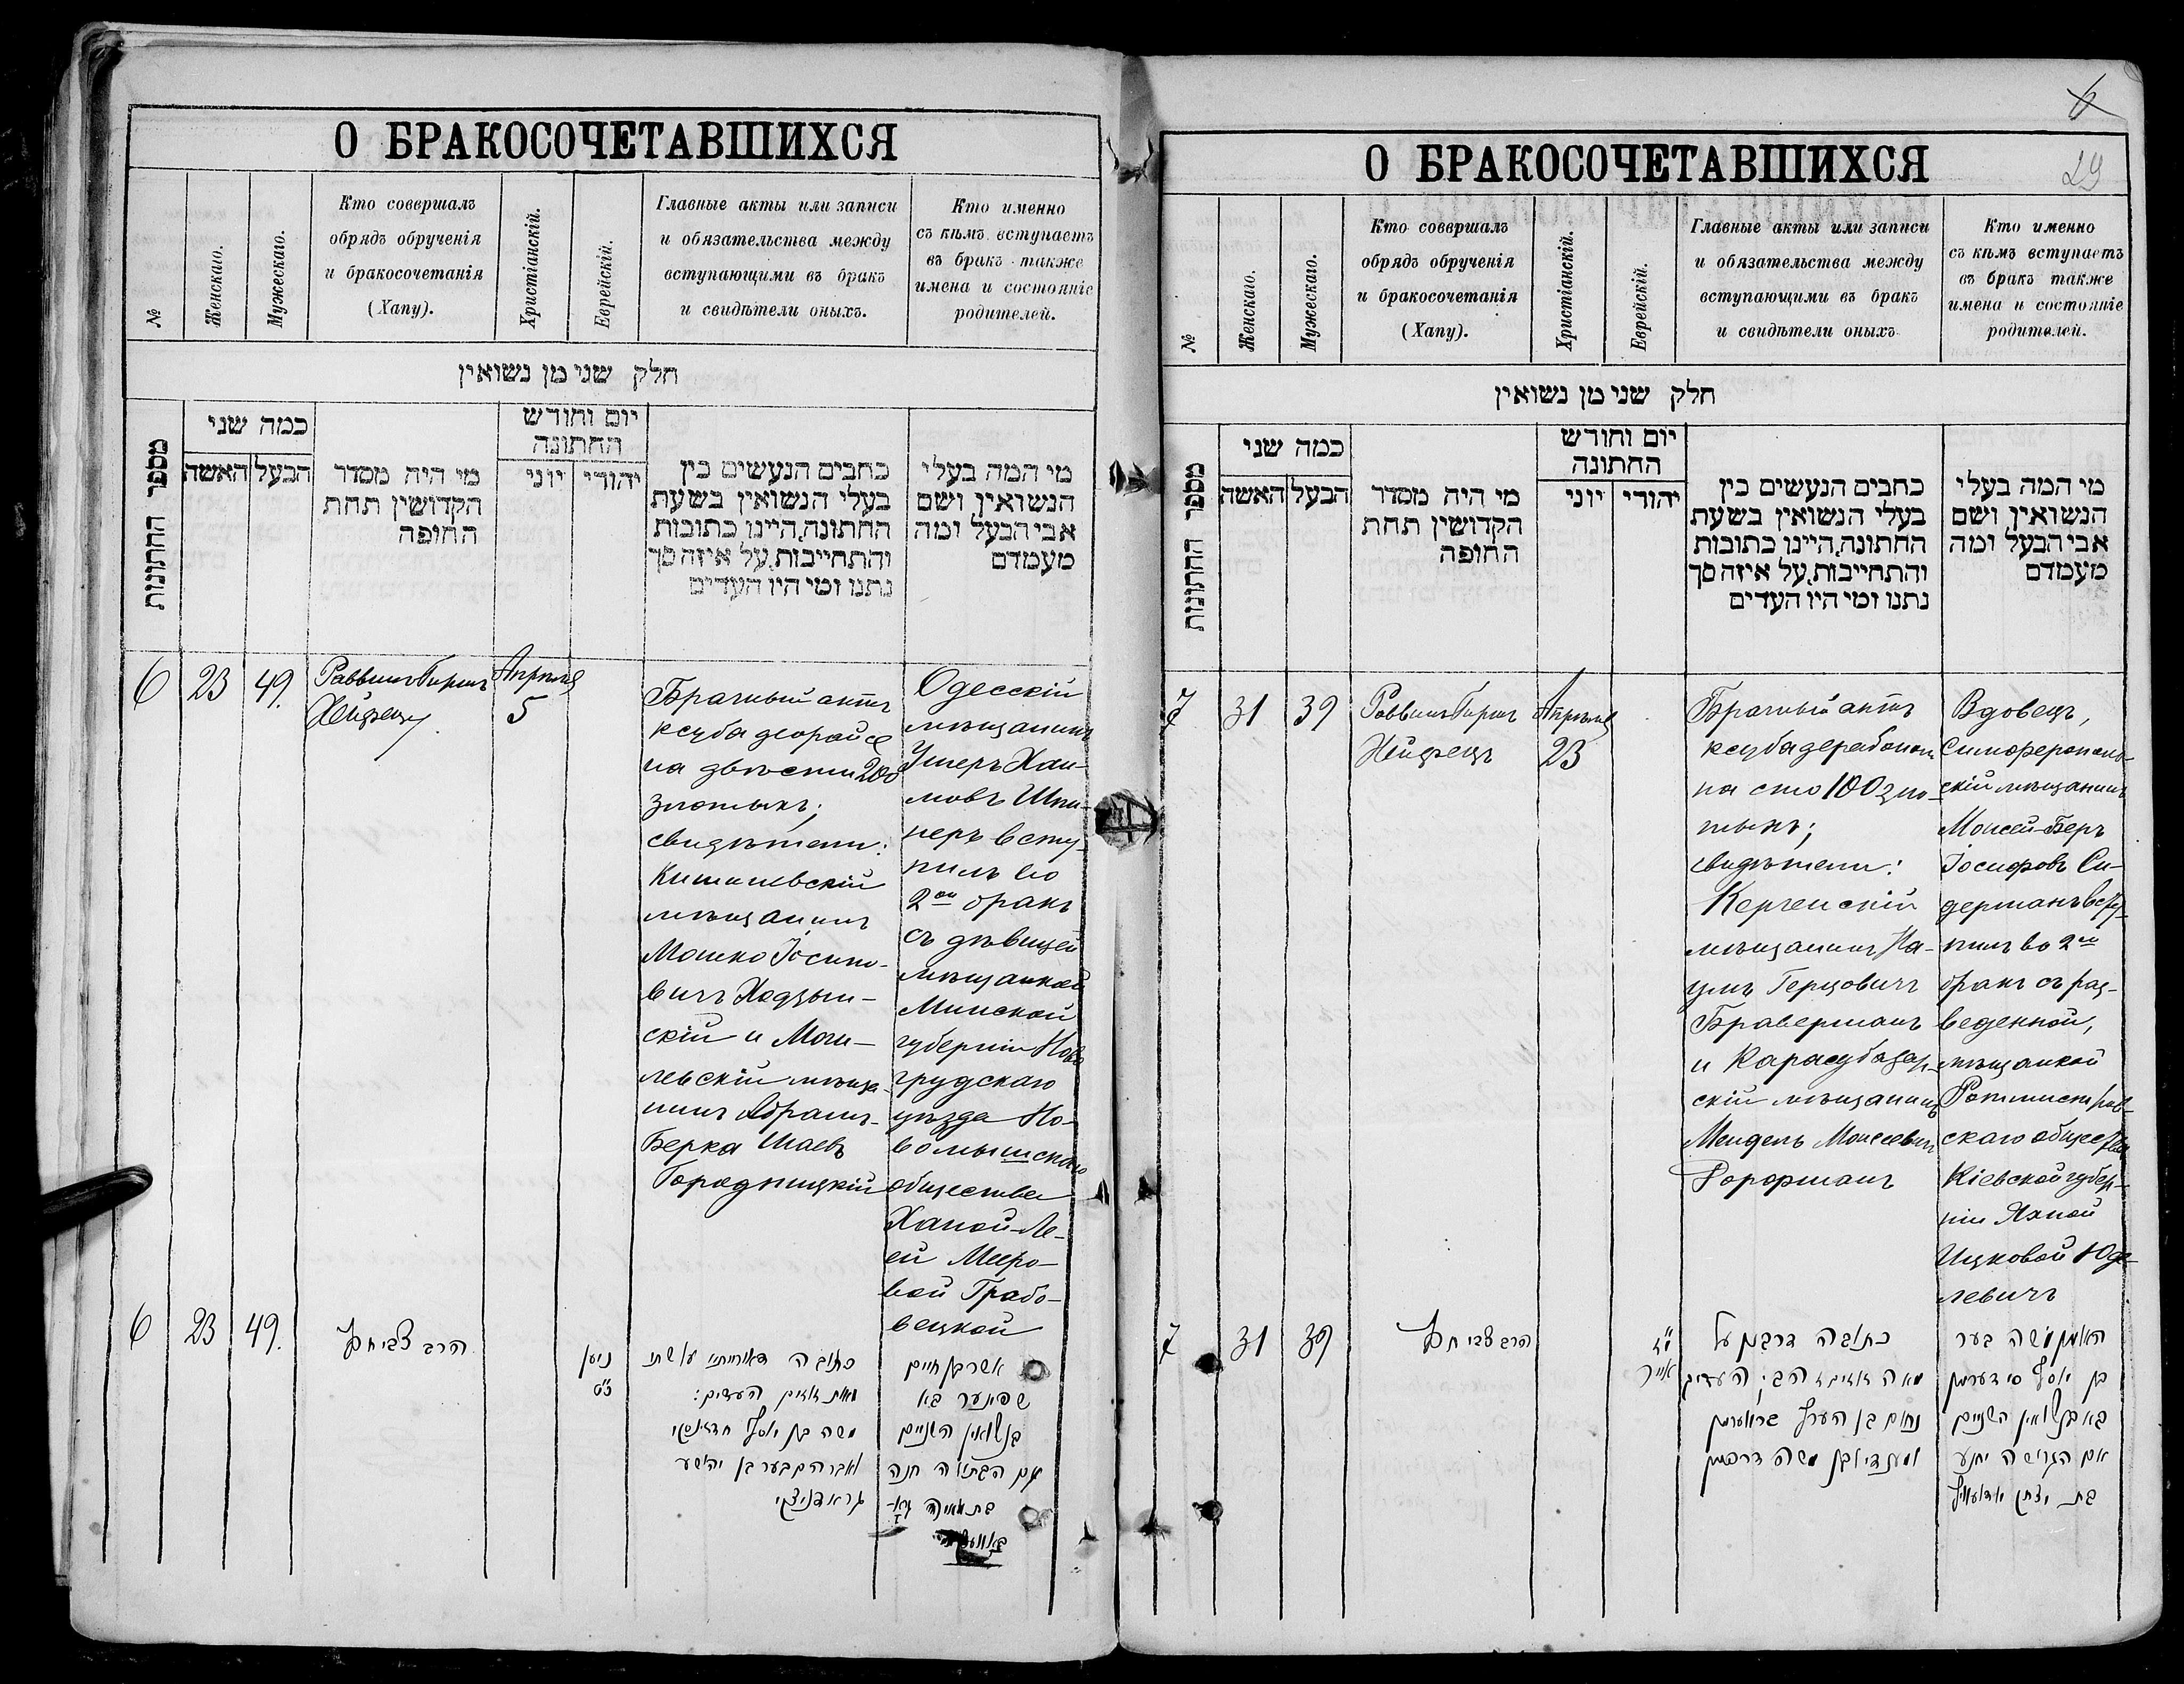 О БРАКОСОЧЕТАВШИХСЯ
№
Женскаго.
Мужескаго.
Кто совершалъ
обрядъ обрученія
и бракосочетанія
(Хапу).
Христіанскій.
Еврейскій.
Главные акты или записи
и обязательства между
вступающими въ бракъ
и свидѣтели оныхъ.
Кто именно
съ кѣмъ вступаетъ
въ бракъ также
имена и состояніе
родителей.
חלק שני מן נשואין
מספר החתונות
כמה שני
האשה
הבעל
מי היה מסדר
הקדושין תחת
החופה
יום וחודש
החתונה
יוני
יהודי
כתבים הנעשים בין
בעלי הנשואין בשעת
החתונה, היינו כתובות
והתחייבות, על איזה סך
נתנו ומי היו העדים
מי המה בעלי
הנשואין ושם
אבי הבעל ומה
מעמדם
6
23
49.
Раввинъ Гиршъ
Хейфецъ
Апрѣля
5
Брачный актъ
ксуба деорайсе
на двѣсти 200
злотыхъ;
свидѣтели:
Кишиневскій
мѣщанинъ
Мошко Іосипо-
вичъ Ходзын-
скій и Моги-
левскій мѣща-
нинъ Абрамъ-
Берка Шаевъ
Городницкій
Одесскій
мѣщанинъ
Ушеръ Хаи-
мовъ Шпи-
неръ всту-
пилъ во
2ой бракъ
съ дѣвицей
мѣщанкой
Минской
губерніи Ново
грудскаго
уѣзда Но-
вомышскаго
общества
Ханой-Ле-
ей Мееро-
вой Грабо-
вецкой
6
23
49.
הרב צבי חפץ
ניסן
כתובה דאורייתא על שתי
מאות זהובים העדים:
משה בן יוסף חדזינסקי
ואברהם בער בן יהושע
גראדניצקי
אשר בן חיים
שפינער בא
בנשואין השניים
עם הבתולה חנה
בת מאיר
О БРАКОСОЧЕТАВШИХСЯ
6
29
№
Женскаго.
Мужескаго.
Кто совершалъ
обрядъ обрученія
и бракосочетанія
(Хапу).
Христіанскій.
Еврейскій.
Главные акты или записи
и обязательства между
вступающими въ бракъ
и свидѣтели оныхъ
Кто именно
съ кѣмъ вступаетъ
въ бракъ также
имена и состояніе
родителей.
חלק שני מן נשואין
מספר החתונות
כמה שני
האשה
הבעל
מי היה מסדר
הקדושין תחת
החופה
יום וחודש
החתונה
יוני
יהודי
כתבים הנעשים בין
בעלי הנשואין בשעת
החתונה, היינו כתובות
והתחייבות, על איזה סך
נתנו ומי היו העדים
מי המה בעלי
הנשואין ושם
אבי הבעל ומה
מעמדם
7
31
39
Раввинъ Гиршъ
Хейфецъ
Апрѣля
23
Брачный актъ
ксуба дерабонон
на сто 100 зло-
тыхъ;
свидѣтели:
Керченскій
мѣщанинъ На-
умъ Герцовичъ
Браверманъ
и Карасубазар-
скій мѣщанинъ
Мендель Моисеевичъ
Дорфманъ
Вдовецъ,
Симферополь-
скій мѣщанинъ
Моисей-Беръ
Іосифовъ Си-
дерманъ всту-
пилъ во 2ой
бракъ съ раз-
веденной,
мѣщанкой
Ротмистров-
скаго общества
Кіевской губер-
ніи Яхной
Ицковой Юде-
левичъ
7
31
39
הרב צבי חפץ
אייר
כתובה דרבנן על
מאה זהובים העדים
נחום בן הערץ בראווערמן
ומענדיל בן משה דרפמן
האלמן משה בער
בן יוסף סידערמן
בא בנשואין השניים
עם הגרושה יחנע
בת יצחק יודעלעוויץ